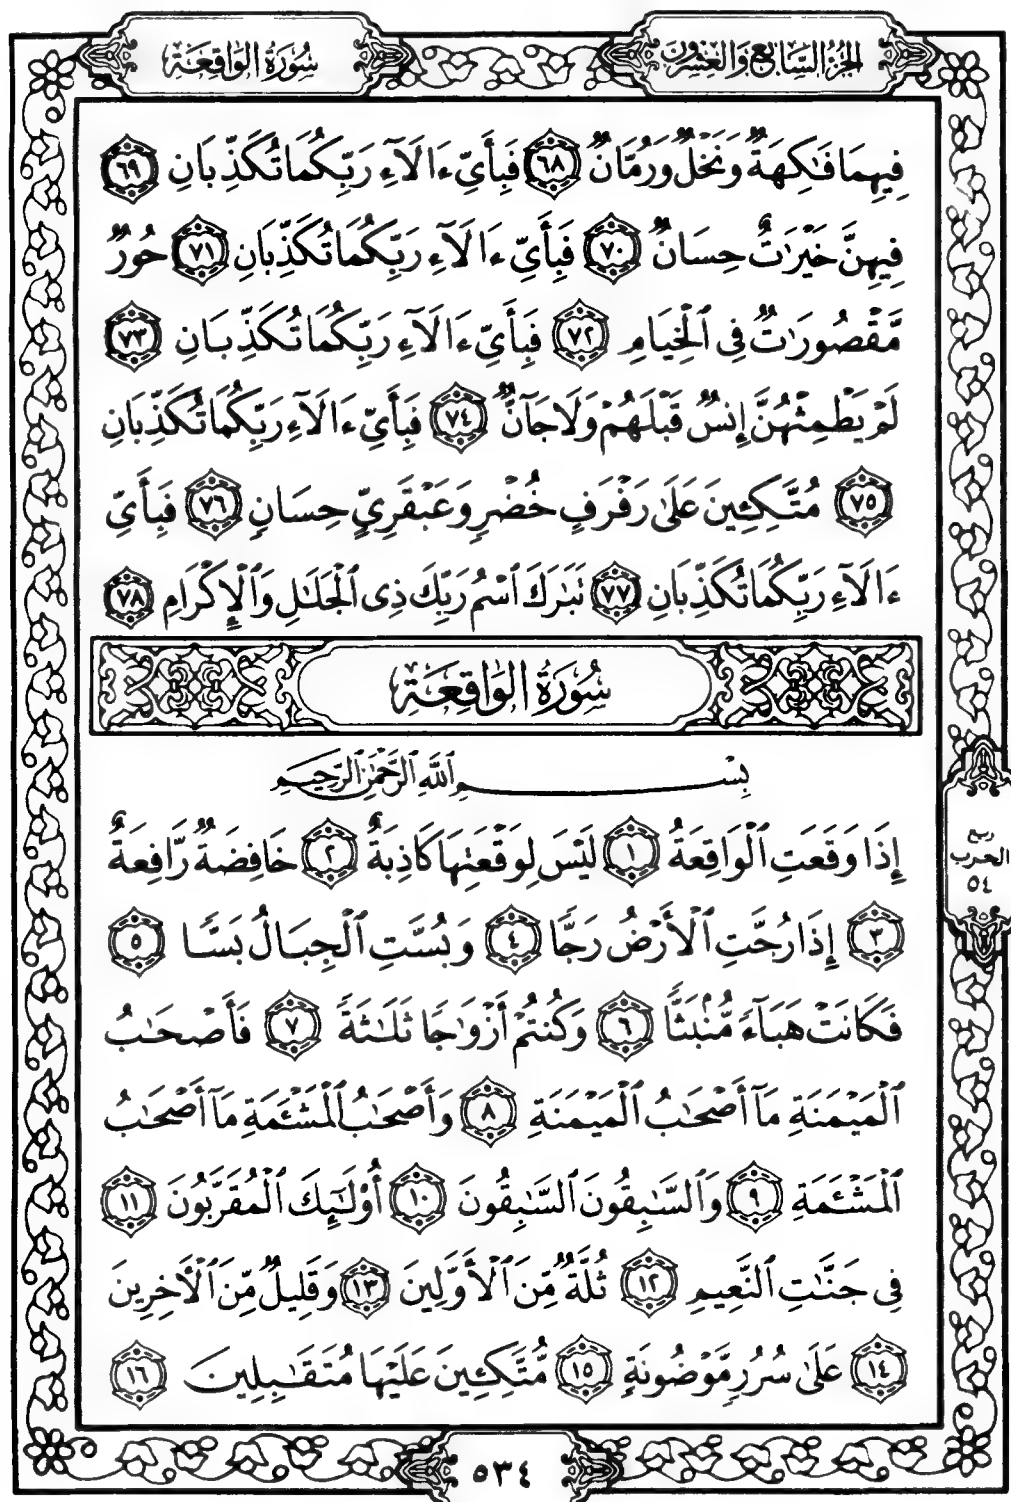 الجزء السابع والعشرون
سورة الواقعة
فِيهِمَا فَٰكِهَةٌ وَنَخْلٌ وَرُمَّانٌ ٦٨ فَبِأَيِّ ءَالَآءِ رَبِّكُمَا تُكَذِّبَانِ ٦٩
فِيهِنَّ خَيْرَٰتٌ حِسَانٌ ٧٠ فَبِأَيِّ ءَالَآءِ رَبِّكُمَا تُكَذِّبَانِ ٧١ حُورٌ
مَّقْصُورَٰتٌ فِى ٱلْخِيَامِ ٧٢ فَبِأَيِّ ءَالَآءِ رَبِّكُمَا تُكَذِّبَانِ ٧٣
لَمْ يَطْمِثْهُنَّ إِنسٌ قَبْلَهُمْ وَلَا جَآنٌّ ٧٤ فَبِأَيِّ ءَالَآءِ رَبِّكُمَا تُكَذِّبَانِ
٧٥ مُتَّكِـِٔينَ عَلَىٰ رَفْرَفٍ خُضْرٍ وَعَبْقَرِيٍّ حِسَانٍ ٧٦ فَبِأَيِّ
ءَالَآءِ رَبِّكُمَا تُكَذِّبَانِ ٧٧ تَبَٰرَكَ ٱسْمُ رَبِّكَ ذِى ٱلْجَلَٰلِ وَٱلْإِكْرَامِ ٧٨
سُورَةُ الوَاقِعَةِ
بِسْمِ ٱللَّهِ ٱلرَّحْمَٰنِ ٱلرَّحِيمِ
إِذَا وَقَعَتِ ٱلْوَاقِعَةُ ١ لَيْسَ لِوَقْعَتِهَا كَاذِبَةٌ ٢ خَافِضَةٌ رَّافِعَةٌ
٣ إِذَا رُجَّتِ ٱلْأَرْضُ رَجًّا ٤ وَبُسَّتِ ٱلْجِبَالُ بَسًّا ٥
فَكَانَتْ هَبَآءً مُّنۢبَثًّا ٦ وَكُنتُمْ أَزْوَٰجًا ثَلَٰثَةً ٧ فَأَصْحَٰبُ
ٱلْمَيْمَنَةِ مَآ أَصْحَٰبُ ٱلْمَيْمَنَةِ ٨ وَأَصْحَٰبُ ٱلْمَشْـَٔمَةِ مَآ أَصْحَٰبُ
ٱلْمَشْـَٔمَةِ ٩ وَٱلسَّٰبِقُونَ ٱلسَّٰبِقُونَ ١٠ أُو۟لَٰٓئِكَ ٱلْمُقَرَّبُونَ ١١
فِى جَنَّٰتِ ٱلنَّعِيمِ ١٢ ثُلَّةٌ مِّنَ ٱلْأَوَّلِينَ ١٣ وَقَلِيلٌ مِّنَ ٱلْءَاخِرِينَ
١٤ عَلَىٰ سُرُرٍ مَّوْضُونَةٍ ١٥ مُّتَّكِـِٔينَ عَلَيْهَا مُتَقَٰبِلِينَ ١٦
ربع
الحزب
٥٤
٥٣٤